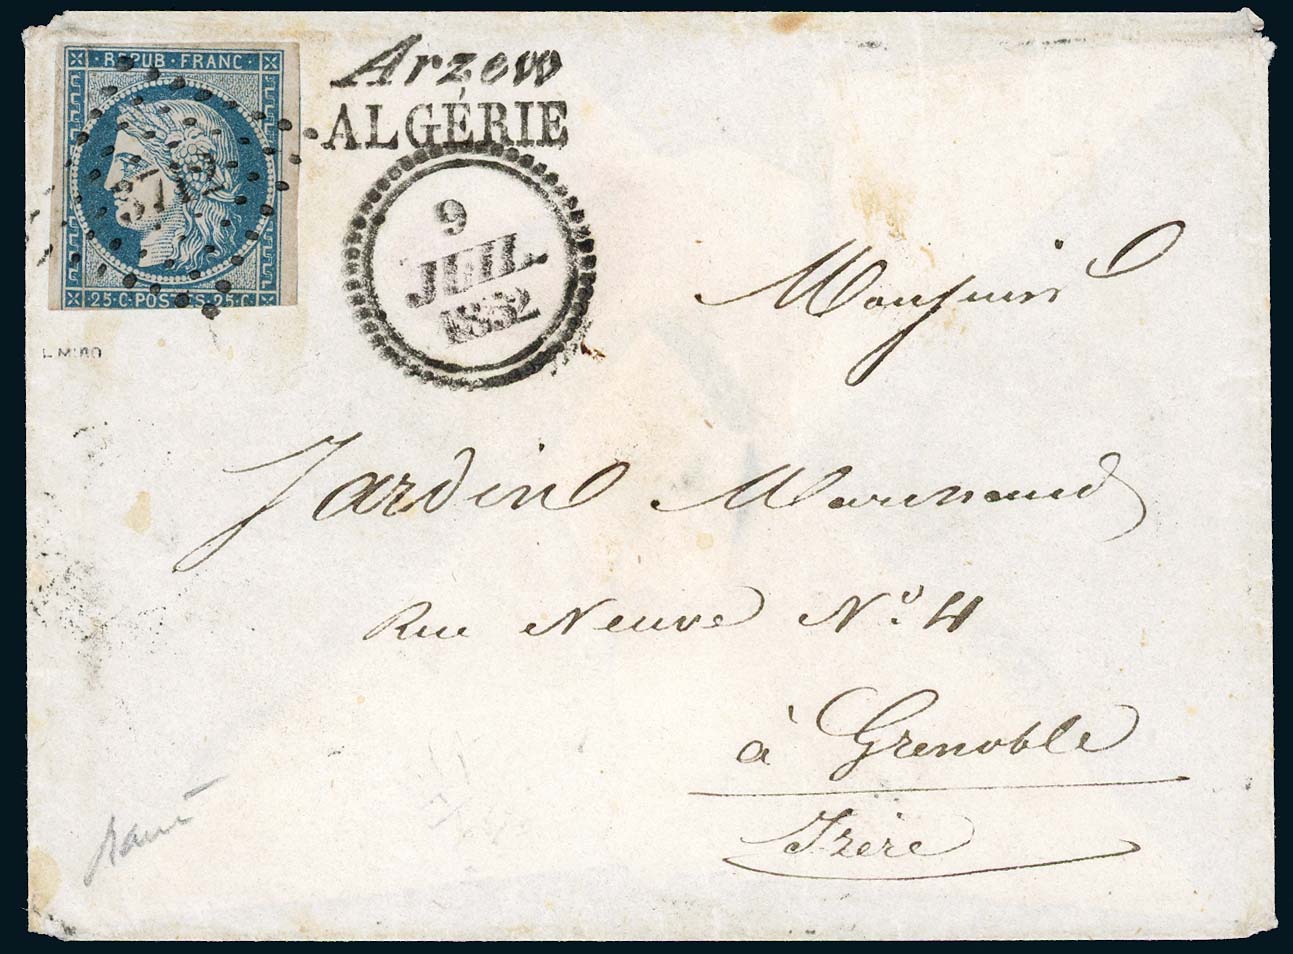 REPUB · FRANC ·
25 · C · POSTES · 25 · C
Arzew
ALGÉRIE
9
JUIL.
1852
L. MIRO
Monsieur
Jardin Marchand
Rue Neuve N.º 4
à Grenoble
Izère